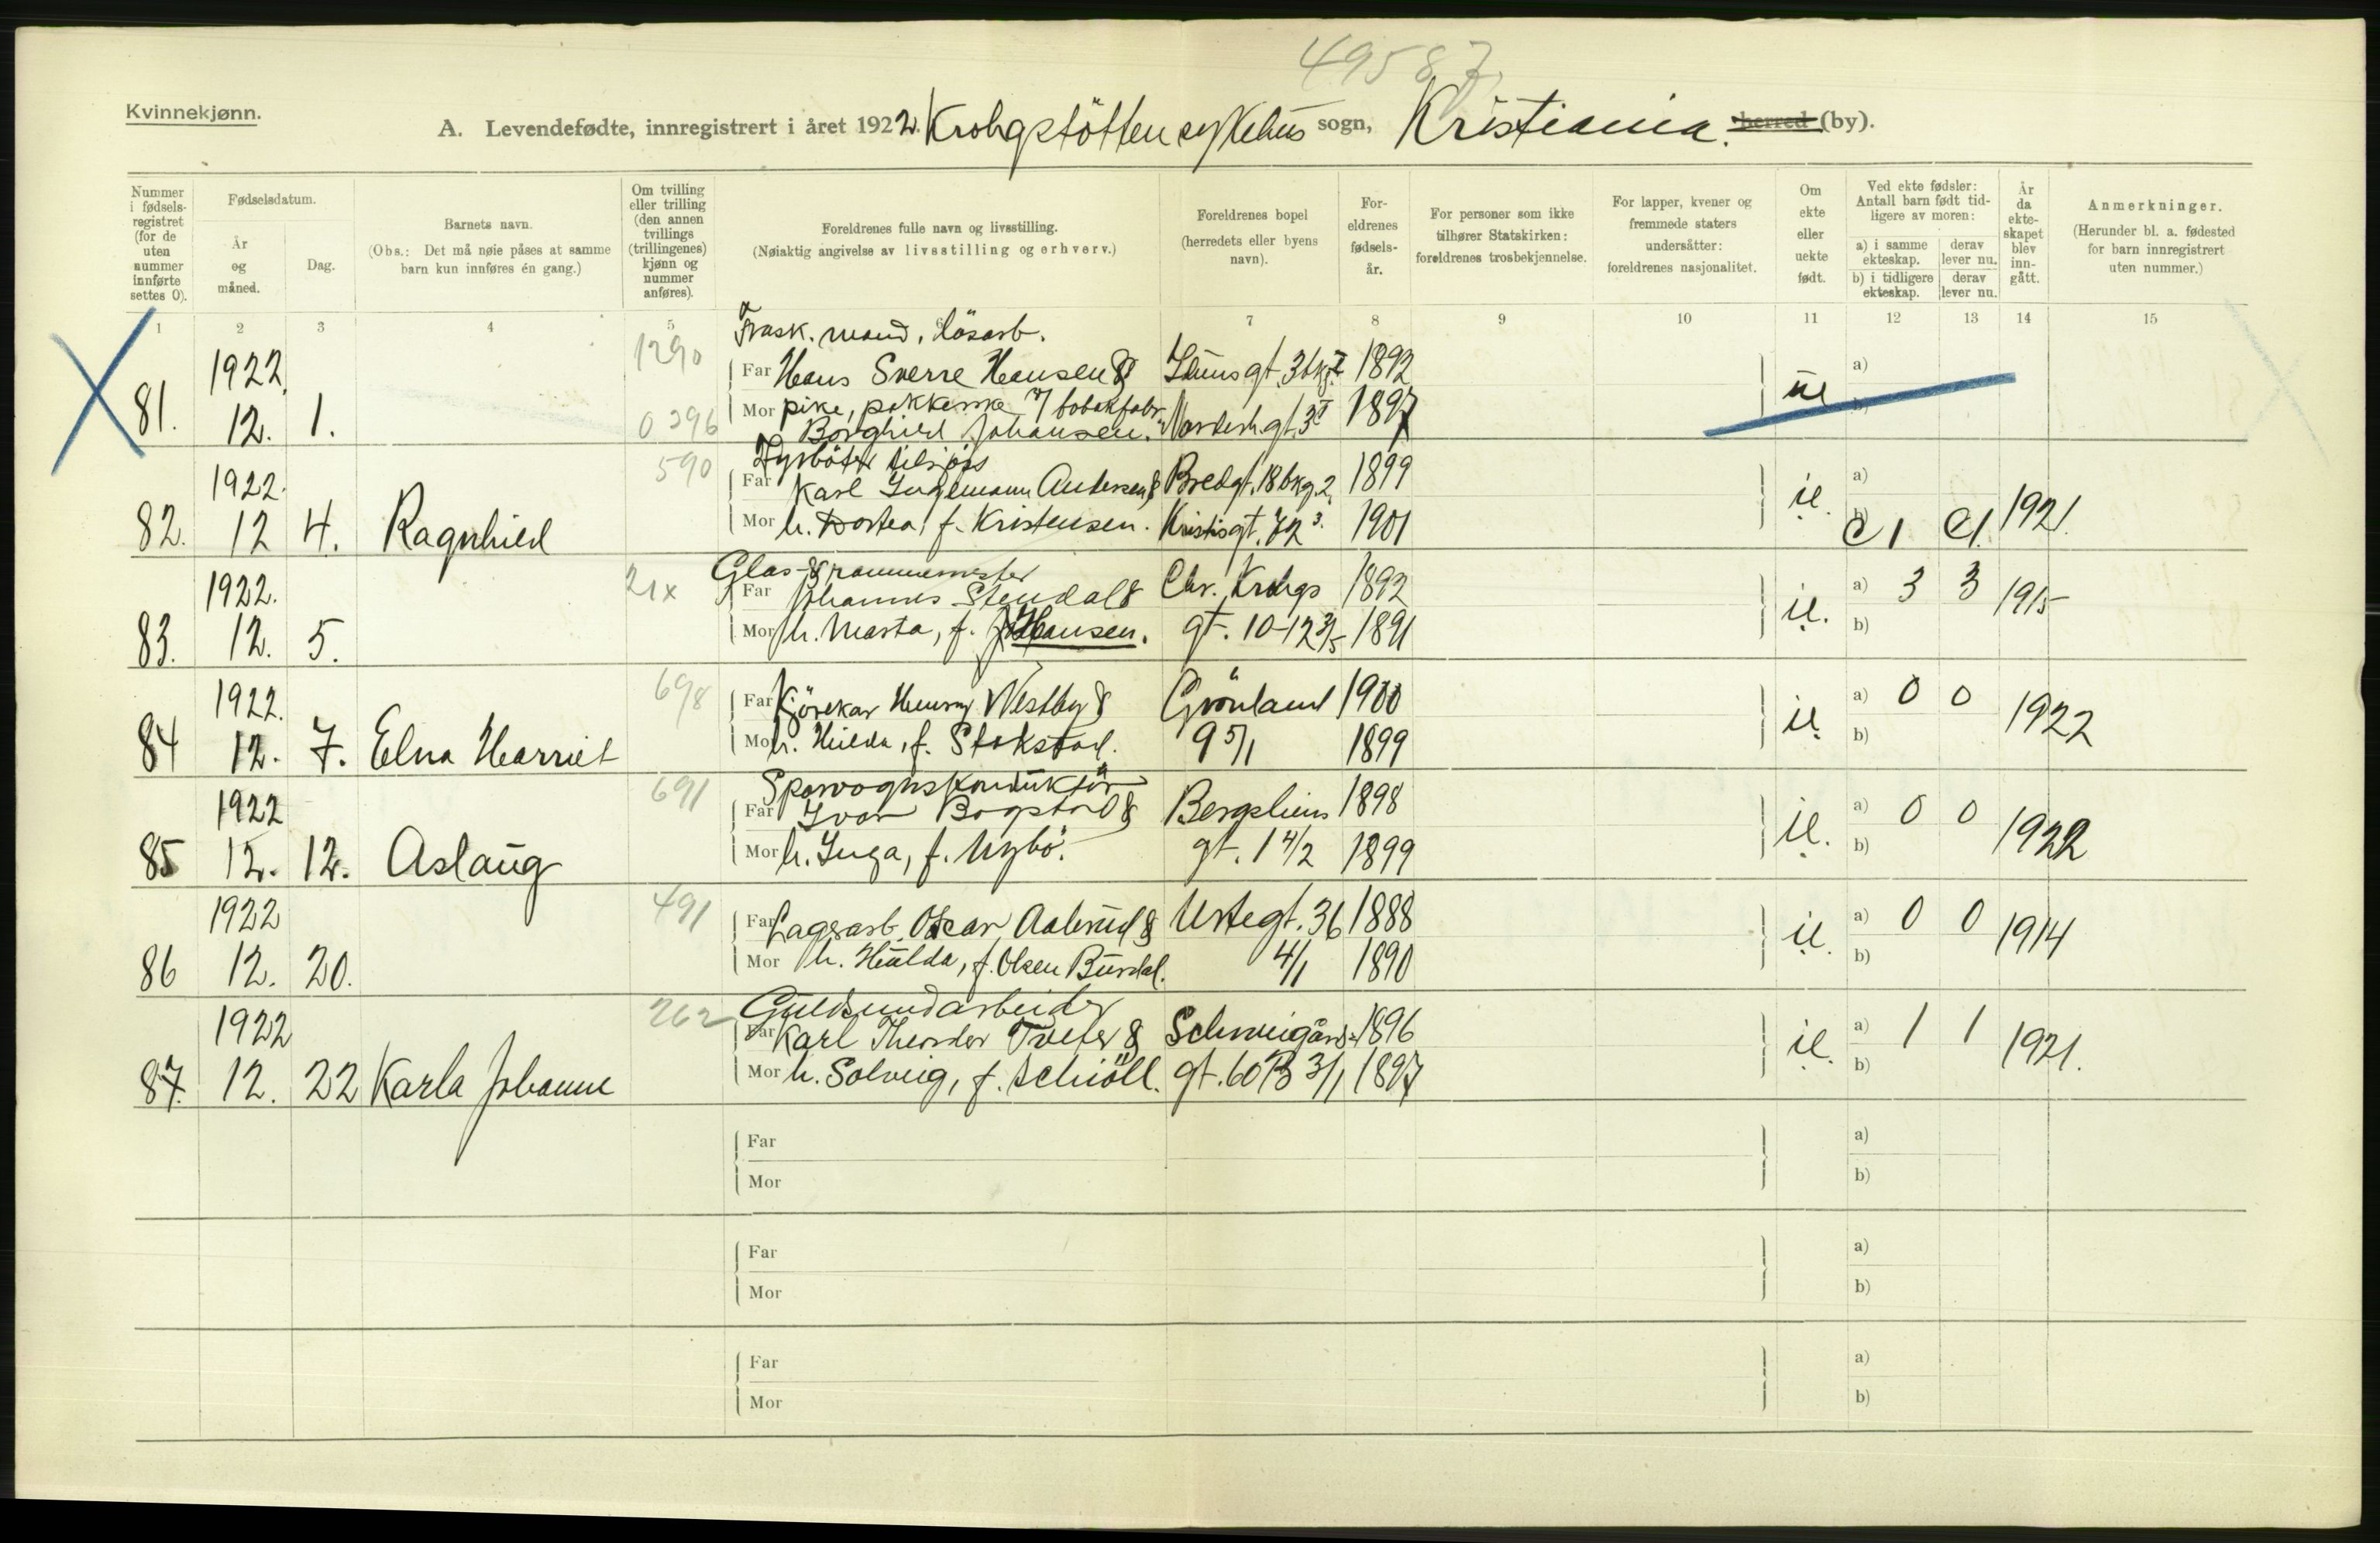 49587
Kvinnekjønn.
A. Levendefødte, innregistrert i året 1922. Krohgstötten sykehus sogn, Kristiania. herred (by).
Nummer i fødsels-registret (for de uten nummer innførte settes 0).
Fødselsdatum.
År og måned.
Dag.
Barnets navn.
(Obs.: Det må nøie påses at samme barn kun innføres én gang.)
Om tvilling eller trilling (den annen tvillings (trillingenes) kjønn og nummer anføres).
Foreldrenes fulle navn og livsstilling.
(Nøiaktig angivelse av livsstilling og erhverv.)
Foreldrenes bopel (herredets eller byens navn).
For-eldrenes fødsels-år.
For personer som ikke tilhører Statskirken: foreldrenes trosbekjennelse.
For lapper, kvener og fremmede staters undersåtter: foreldrenes nasjonalitet.
Om ekte eller uekte født.
Ved ekte fødsler: Antall barn født tid-ligere av moren:
a) i samme ekteskap. derav lever nu.
b) i tidligere ekteskap. derav lever nu.
År da ekte-skapet blev inn-gått.
Anmerkninger.
(Herunder bl. a. fødested for barn innregistrert uten nummer.)
1 2 3 4 5 6 7 8 9 10 11 12 13 14 15
Frask. mand, Lösarb.
1922. 1290 Far Hans Sverre Hansen & 1892 a)
81. 12. 1. 0296 Mor pike, pakkerske Borghild Johansen. 1897 ue b)
1922. 590 Far Karl Ingemann Andersen & Bredgt. 18 bkg. 2 1899 a)
82. 12 4. Ragnhild Mor h. Dortea, f. Kristensen. Kristisgt. 72 3. 1901 ie. b) 1 1 1921.
Glas- & rammemester
1922. 21x Far Johannes Stendal & Chr. Krohgs 1892 a) 3 3 1915
83. 12. 5. Mor h. Marta, f. Hansen. gt. 10-12 3/5 1891 ie. b)
1922. 698 Far Kjörekar Henry Westby & Grönland 1900 a) 0 0 1922
84 12. 7. Elna Harriet Mor h. Hilda, f. Stokstad. 9 5/1 1899 ie. b)
Sporvognskonduktör
1922 691 Far Ivar Bogstad & Bergsliens 1898 a) 0 0
85 12. 12. Aslaug Mor h. Inga, f. Nybö. gt. 1 4/2 1899 ie. b) 1922
1922 491 Far Lagerarb. Oscar Aabrud & Urtegt. 36 1888 a) 0 0 1914
86 12. 20. Mor h. Hulda, f. Olsen Burdal. 4/1 1890 ie. b)
Guldsmedarbeider
1922 262 Far Karl Theodor Tveter & Schweigårds- 1896 a) 1 1
87. 12. 22 Karla Johanne Mor h. Solveig, f. Schiöll. gt. 60 B 3/1 1897 ie. b) 1921.
Far a)
Mor b)
Far a)
Mor b)
Far a)
Mor b)